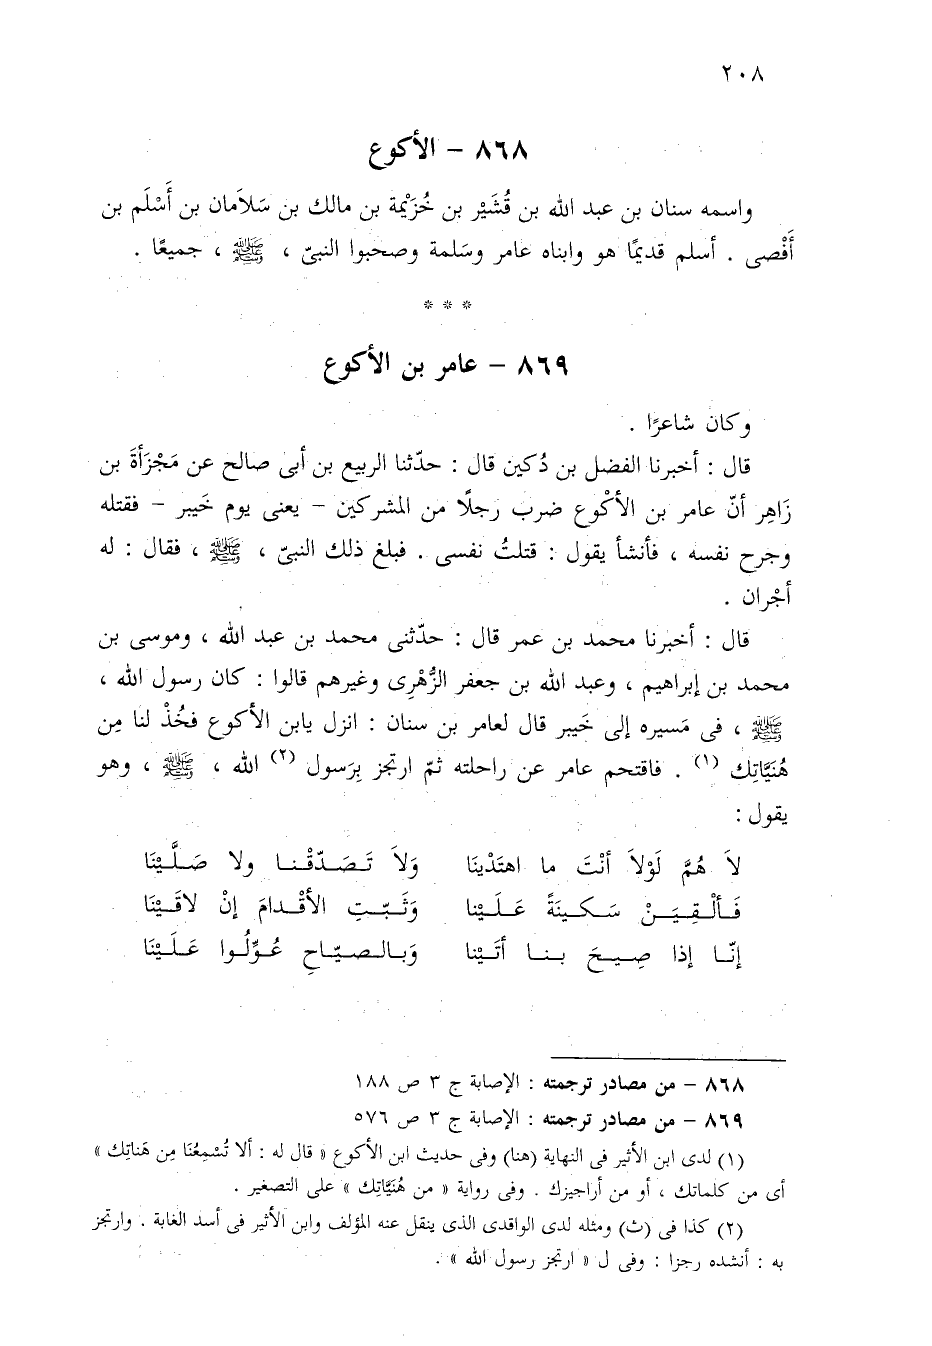 ٢٠٨
٨٦٨ – الأكوع
واسمه سنان بن عبد الله بن قُشَيْر بن خُزَيْمة بن مالك بن سَلاَمان بن أَسْلَم بن
أَفْصى . أسلم قديمًا هو وابناه عامر وسَلمة وصحبوا النبىّ ، ﷺ ، جميعًا .
* * *
٨٦٩ – عامر بن الأكوع
وكان شاعرًا .
قال : أخبرنا الفضل بن دُكين قال : حدّثنا الربيع بن أبى صالح عن مَجْزَأةَ بن
زَاهِر أنّ عامر بن الأكْوع ضرب رجلًا من المشركين – يعنى يوم خَيبر – فقتله
وجرح نفسه ، فأنشأ يقول : قتلتُ نفسى . فبلغ ذلك النبىّ ، ﷺ ، فقال : له
أجْران .
قال : أخبرنا محمد بن عمر قال : حدّثنى محمد بن عبد الله ، وموسى بن
محمد بن إبراهيم ، وعبد الله بن جعفر الزُّهْرِى وغيرهم قالوا : كان رسول الله ،
ﷺ ، فى مَسيره إلى خَيبر قال لعامر بن سنان : انزل يابن الأكوع فخُذْ لنا مِن
هُنَيَّاتِك (١) . فاقتحم عامر عن راحلته ثمّ ارتجز بِرَسول (٢) الله ، ﷺ ، وهو
يقول :
لاَ هُمَّ لَوْلاَ أنْتَ ما اهتَدْينَا وَلاَ تَصَدّقْنا ولا صَلَّيْنَا
فَألْقِيَنْ سَكينَةً عَلَيْنا وَثَبّتِ الأقْدامَ إنْ لاقَيْنَا
إنّا إذا صِيحَ بنا أتَيْنا وَبالصيّاحِ عُوِّلُوا عَلَيْنَا
٨٦٨ – من مصادر ترجمته : الإصابة ج ٣ ص ١٨٨
٨٦٩ – من مصادر ترجمته : الإصابة ج ٣ ص ٥٧٦
(١) لدى ابن الأثير فى النهاية (هنا) وفى حديث ابن الأكوع « قال له : ألا تُسْمِعُنَا مِن هَناتِك »
أى من كلماتك ، أو من أراجيزك . وفى رواية « من هُنَيَّاتِك » على التصغير .
(٢) كذا فى (ث) ومثله لدى الواقدى الذى ينقل عنه المؤلف وابن الأثير فى أسد الغابة . وارتجز
به : أنشده رجزا : وفى ل « ارتجز رسول الله » .